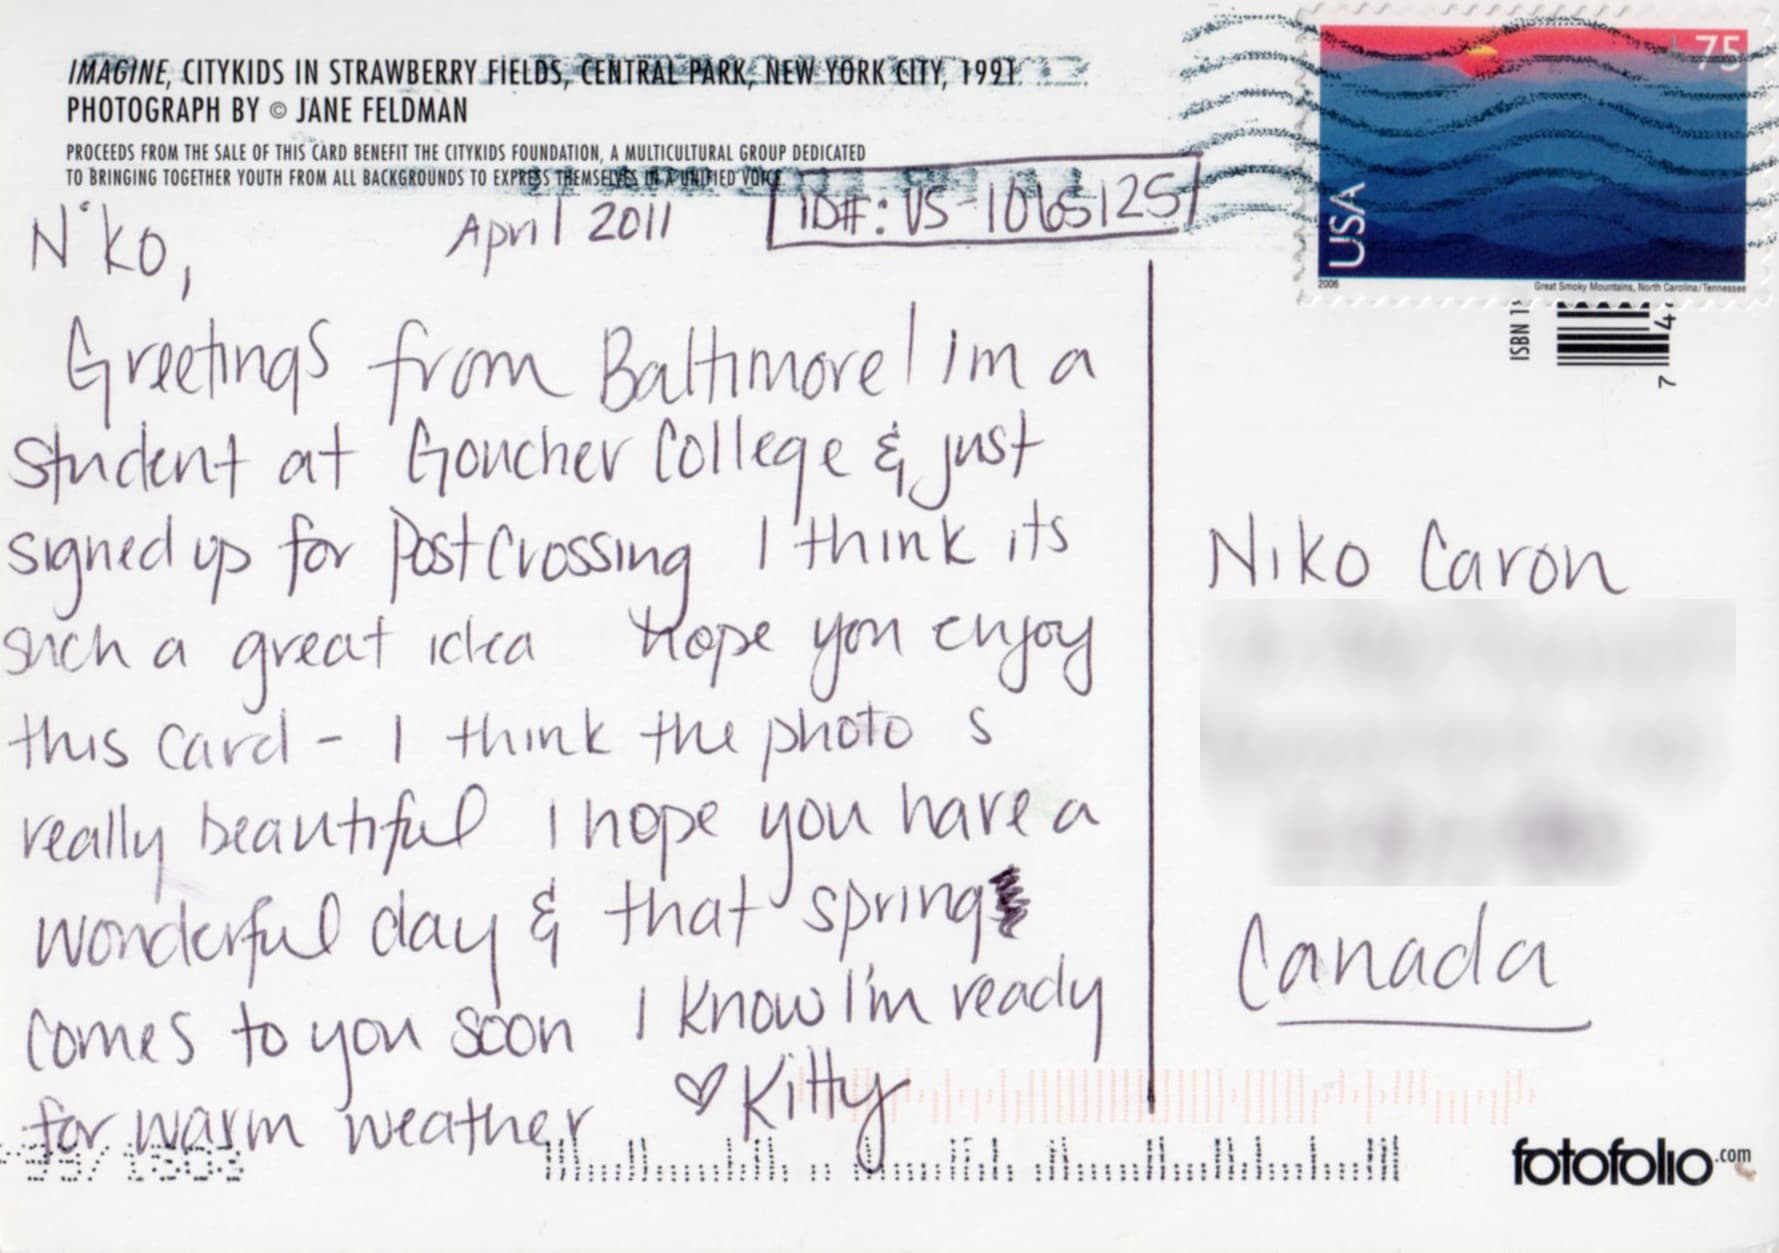 IMAGINE, CITYKIDS IN STRAWBERRY FIELDS, CENTRAL PARK, NEW YORK CITY, 1991.
PHOTOGRAPH BY © JANE FELDMAN
PROCEEDS FROM THE SALE OF THIS CARD BENEFIT THE CITYKIDS FOUNDATION, A MULTICULTURAL GROUP DEDICATED
TO BRINGING TOGETHER YOUTH FROM ALL BACKGROUNDS TO EXPRESS THEMSELVES IN A UNIFIED VOICE
75
USA
2006 Great Smoky Mountains, North Carolina/Tennessee
ISBN 1
7 4
ID#: US-1065125
Niko, April 2011
Greetings from Baltimore! im a
student at Goucher College & just
signed up for PostCrossing I think its
such a great idea hope you enjoy
this card - I think the photo s
really beautiful I hope you have a
wonderful day & that spring
comes to you soon I know I'm ready
for warm weather ♡ Kitty
Niko Caron
Canada
fotofolio.com